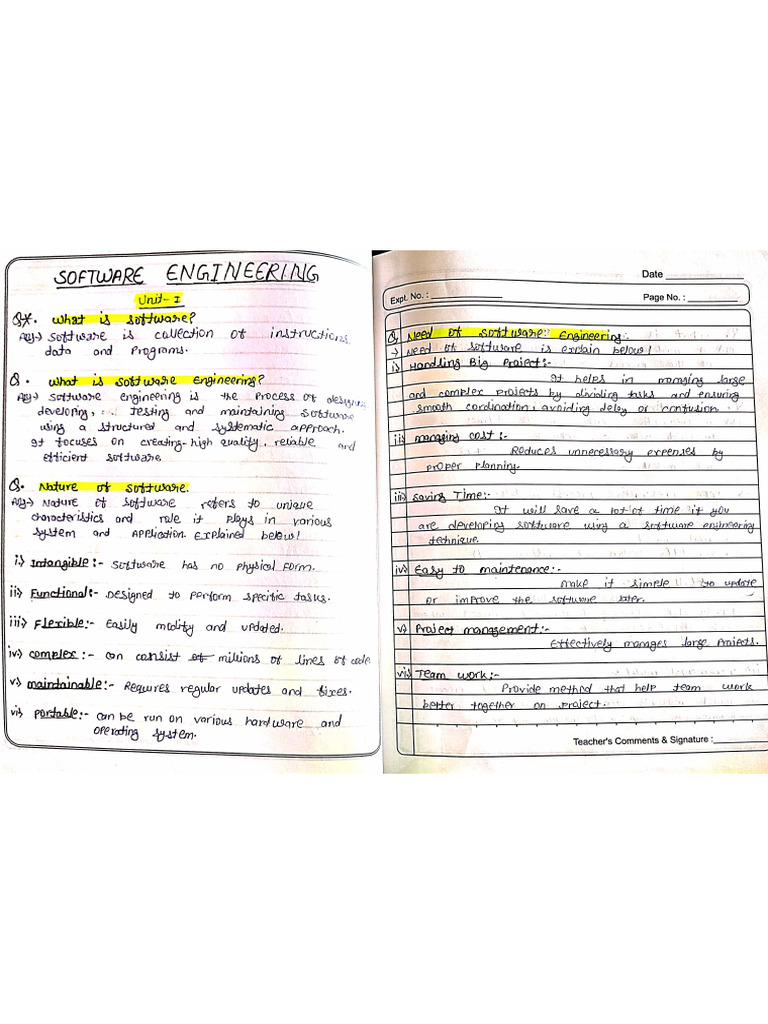 SOFTWARE ENGINEERING
Unit-I
Q*. What is software?
Ans→ Software is collection of instructions
data and Programs.
Q. What is software Engineering?
Ans→ Software engineering is the Process of
developing, Testing and maintaining Software
using a structured and systematic approach.
It focuses on creating-high quality, reliable and
efficient software.
Q. Nature of software.
Ans→ Nature of software refers to unique
characteristics and role it plays in various
system and Application. Explained below!
i) Intangible:- Software has no physical Form.
ii) Functional:- Designed to perform specific tasks.
iii) Flexible:- Easily modify and updated.
iv) complex:- can consist of millions of lines of code
v) maintainable:- Requires regular updates and fixes.
vi) portable:- can be run on various hardware and
operating system.
Date
Expt. No. :
Page No. :
Q Need of software: Engineering:
→ Need of software is explain below!
i) Handling Big Project:-
It helps in managing large
and complex projects by dividing tasks and ensuring
smooth cordination, avoiding delay or confusion.
ii) managing cost:-
Reduces unnecessary expenses by
proper planning.
iii) Saving Time:-
It will save a lot of time if you
are developing software using a software engineering
technique.
iv) Easy to maintenance:-
make it simple to update
or improve the software later.
v) Project management:-
Effectively manages large Projects.
vi) Team work:-
Provide method that help team work
better together on Project.
Teacher's Comments & Signature :